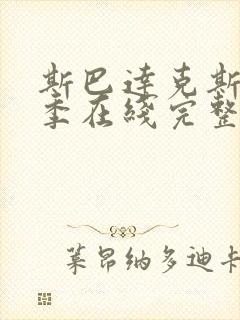 斯巴達克斯
季在綫完整
莱昂纳多迪卡